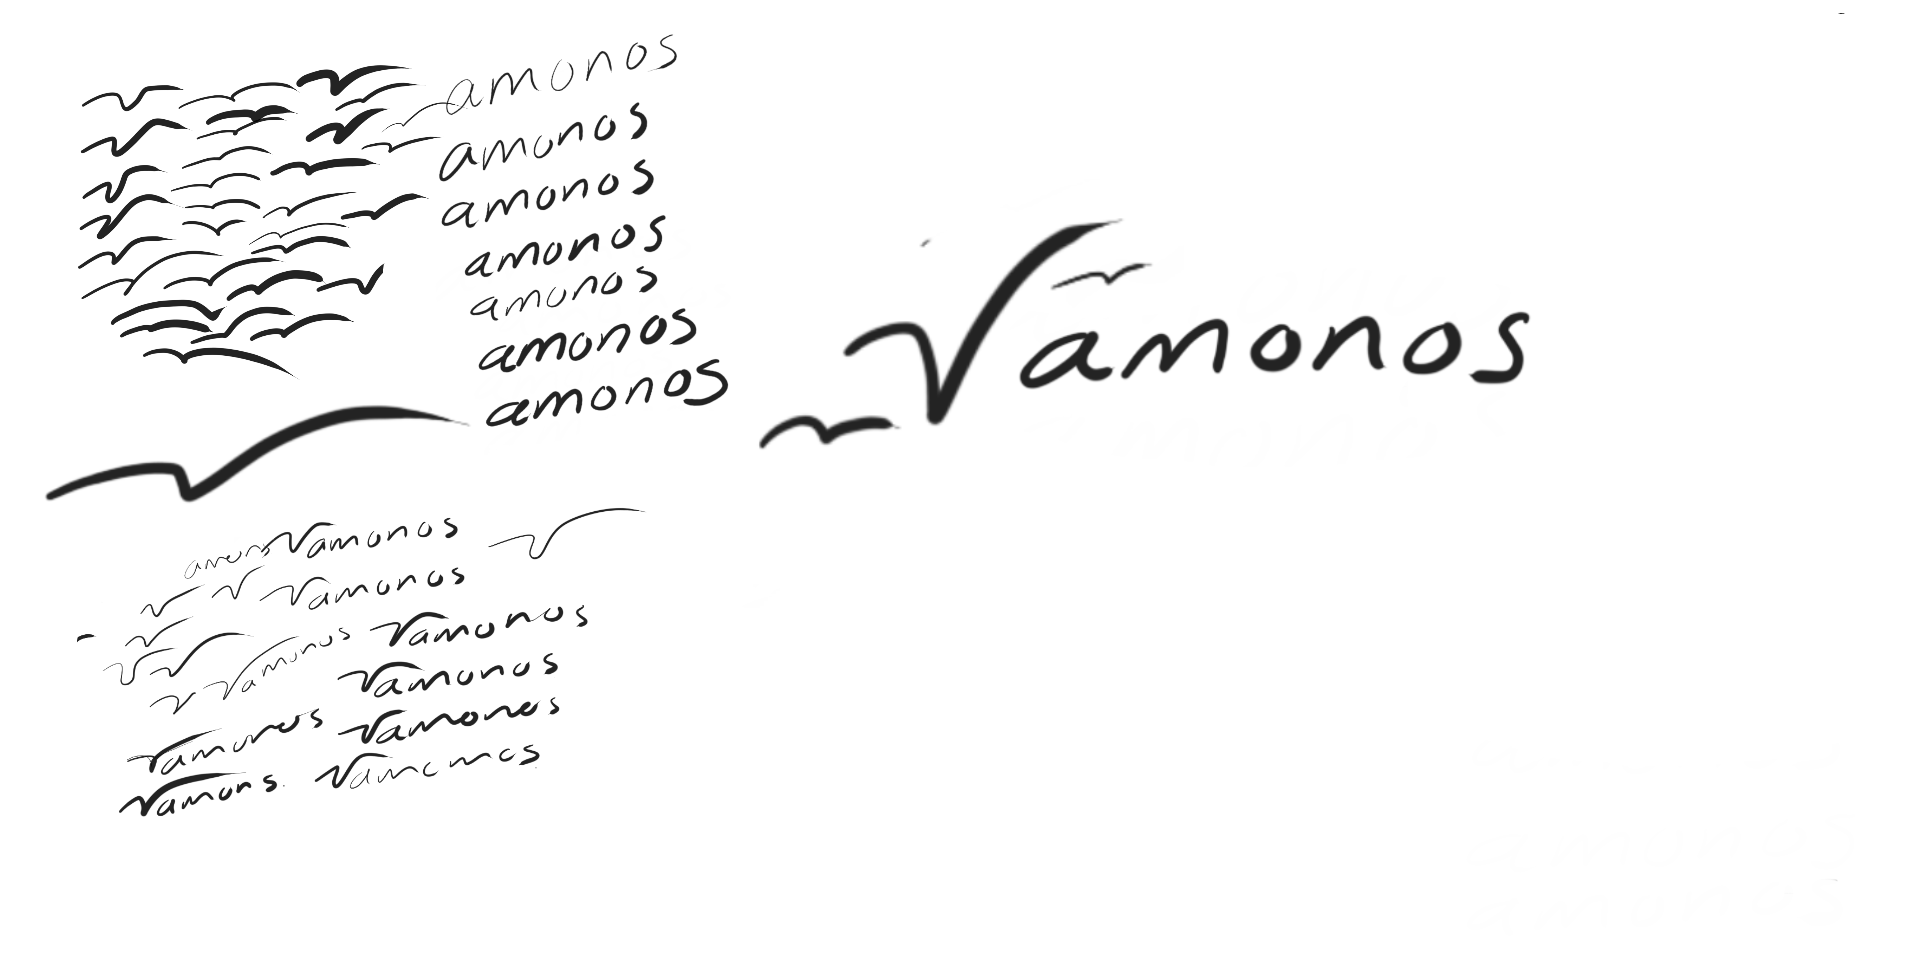 amonos
amonos
amonos
amonos
amonos
amonos
amonos
Vamonos
Vamonos
Vamonos
Vamonos
Vamonos
Vamonos
Vamonos
Vamonos
Vamons
Vamonos